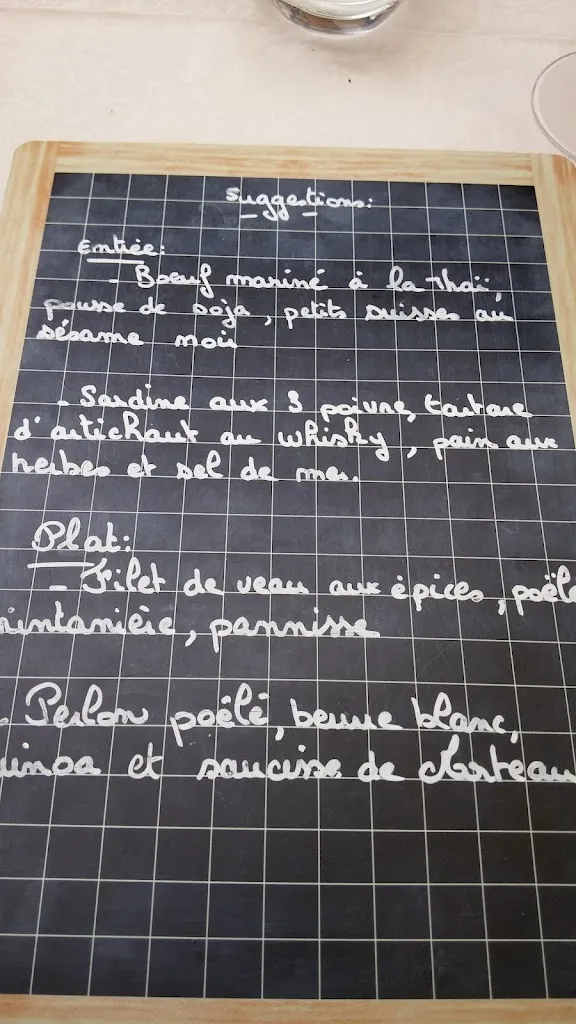 Suggestions:
Entrée:
- Boeuf mariné à la Thaï,
pousse de soja, petits suisses au
sésame noir
- Sardine aux 3 poivre, tartare
d'artichaut au whisky, pain aux
herbes et sel de mer.
Plat:
- Filet de veau aux épices, poêlé
rintanière, pannisse
- Perlon poêlé, beurre blanc,
uinoa et saucisse de